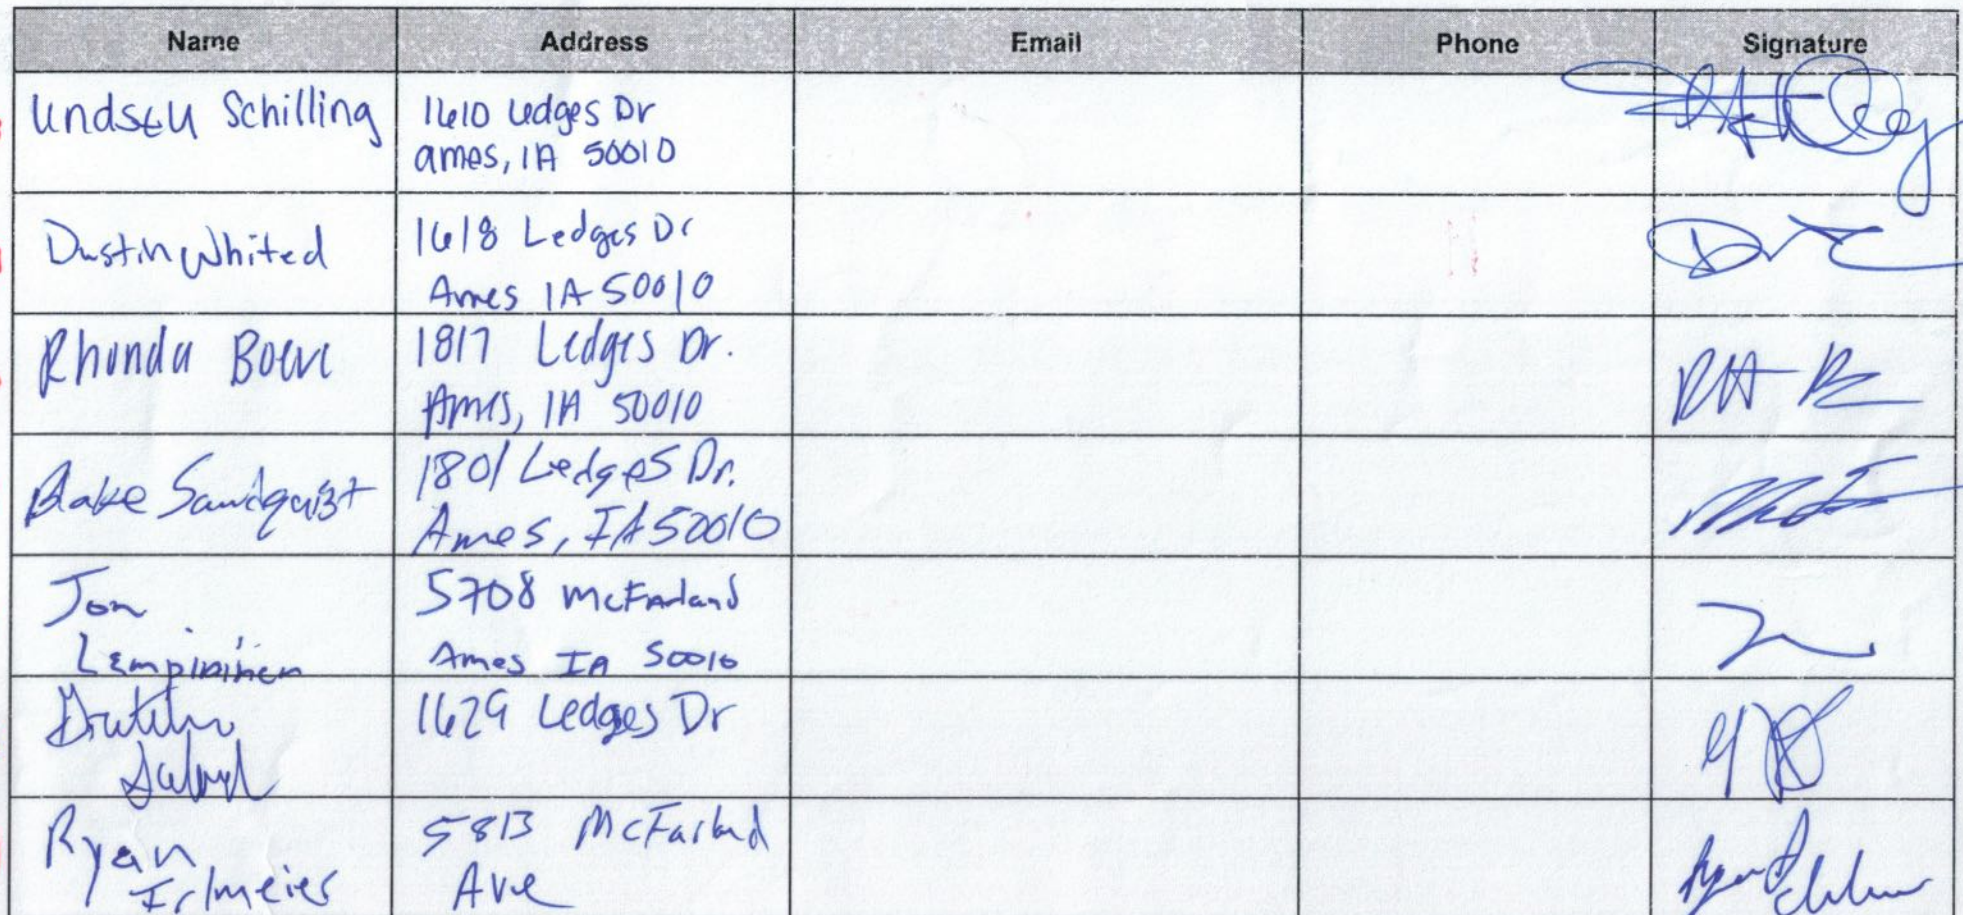 Name Address Email Phone Signature
Lindsey Schilling
1610 Ledges Dr
Ames, IA 50010
Dustin Whited
1618 Ledges Dr
Ames IA 50010
Rhonda Boeve
1817 Ledges Dr.
Ames, IA 50010
Blake Sandquist
1801 Ledges Dr.
Ames, IA 50010
Jon
5708 McFarland
Ames IA 50010
1629 Ledges Dr
Ryan
Irlmeier
5813 McFarland
Ave